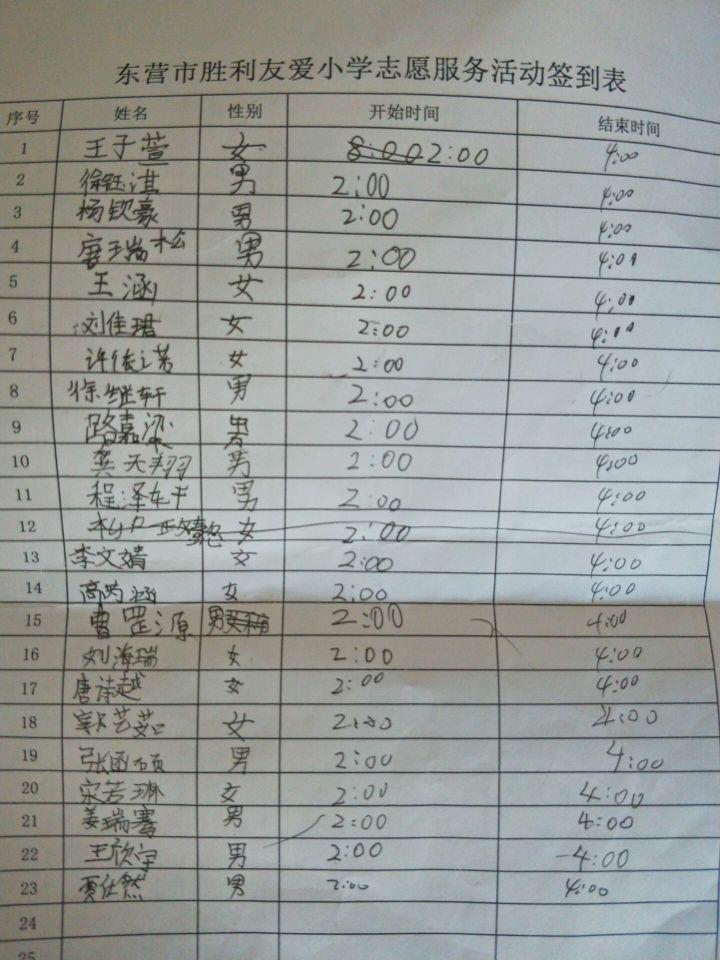 东营市胜利友爱小学志愿服务活动签到表
序号 姓名 性别 开始时间 结束时间
1 王子萱 女 8:00 2:00 4:00
2 徐钰淇 男 2:00 4:00
3 杨钦豪 男 2:00 4:00
4 唐瑞松 男 2:00 4:00
5 王涵 女 2:00 4:00
6 刘佳珺 女 2:00 4:00
7 许依诺 女 2:00 4:00
8 徐继轩 男 2:00 4:00
9 路嘉梁 男 2:00 4:00
10 龚天翔 男 2:00 4:00
11 程泽轩 男 2:00 4:00
12 女 2:00 4:00
13 李文婧 女 2:00 4:00
14 高芮涵 女 2:00 4:00
15 曹罡源 男 2:00 4:00
16 刘海瑞 女 2:00 4:00
17 唐诗越 女 2:00 4:00
18 郭艺茹 女 2:00 4:00
19 张函硕 男 2:00 4:00
20 宋若琳 女 2:00 4:00
21 姜瑞骞 男 2:00 4:00
22 王欣宇 男 2:00 4:00
23 贾仕然 男 2:00 4:00
24
25